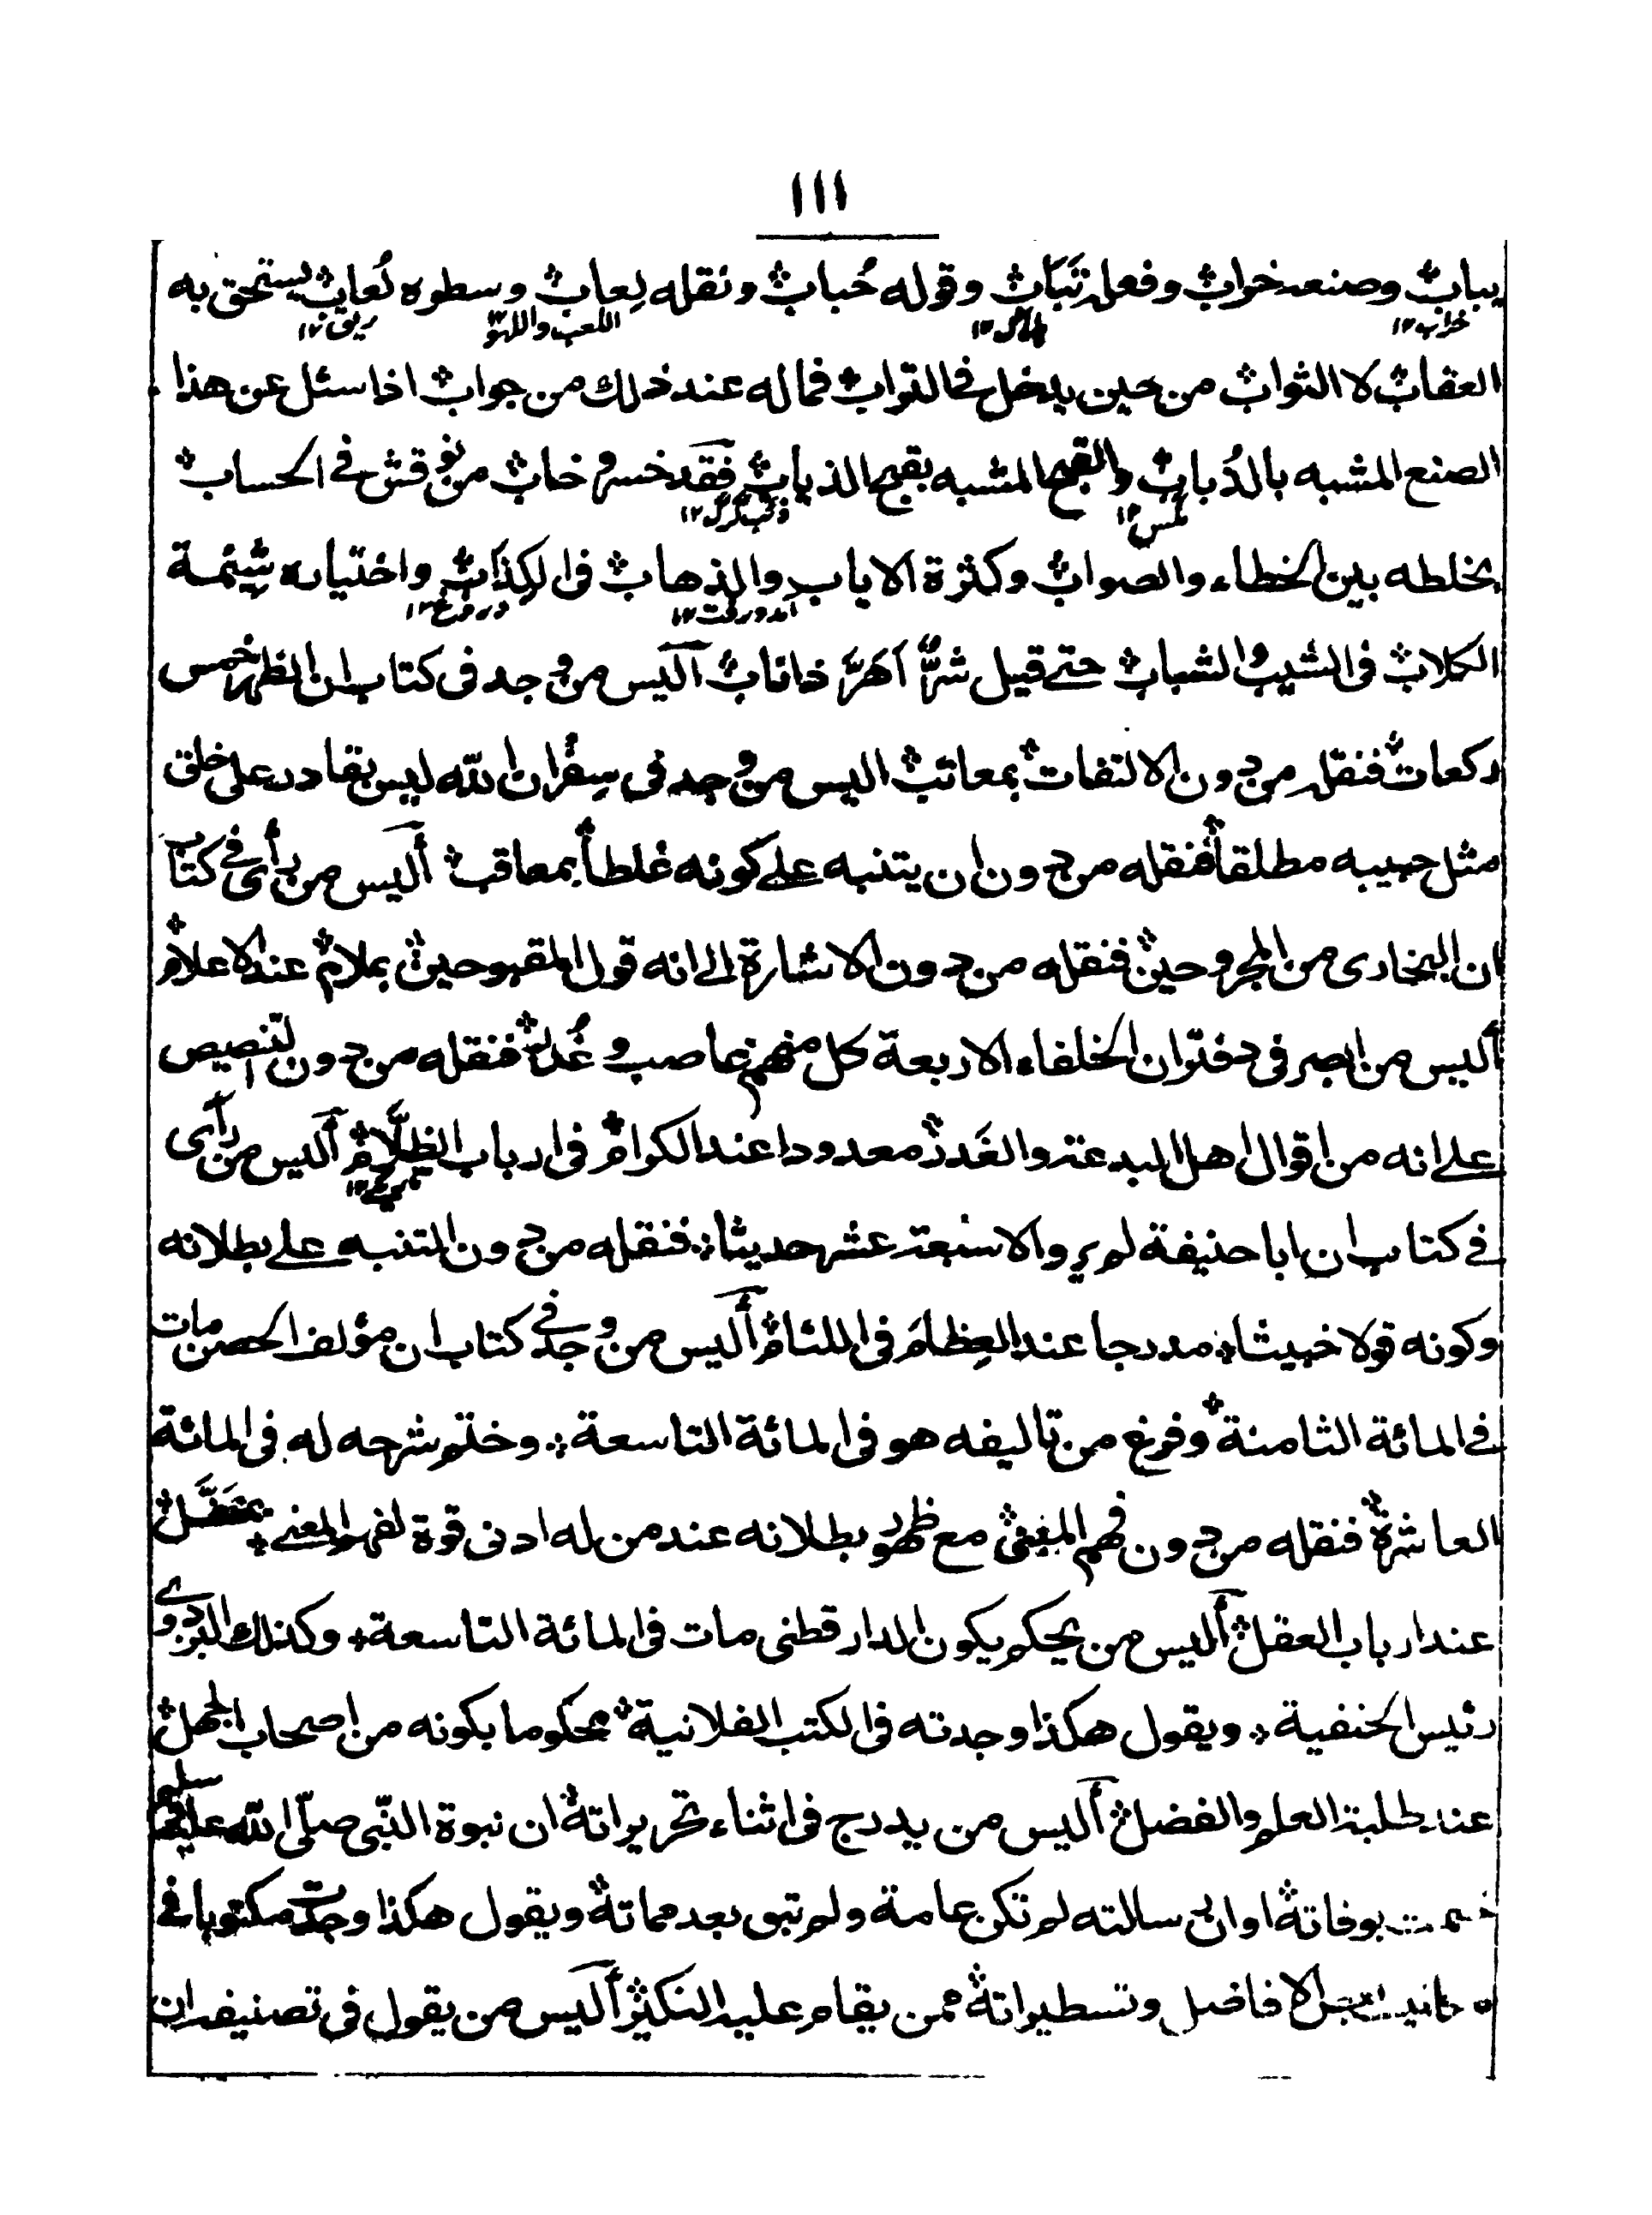 ١١١
يباب وصنعه خراب وفعله تَبَاب وقوله حُباب ونقله لِعاب وسطوره لُعاب يستحق به
خراب ١٢ اللعب واللهو ريق ١٢
العقاب لا الثواب من حين يدخل فى التراب فما له عند ذلك من جواب اذا سئل عن هذا
الصنع المشبه بالذُباب والقبح المشبه بقبح الذياب فقد خسر وخاب من نوقش فى الحساب
مگس ١٢ گرگ ١٢
بخلطه بين الخطاء والصواب وكثرة الاياب والذهاب فى الكِذاب واختياره شيمة
آمد ورفت ١٢ دروغ ١٢
الكلاب فى الشيب والشباب حتى قيل شرٌّ اَهَرَّ ذاناب آليس من وجد فى كتاب ان الظهر خمس
ركعات فنقله من دون الالتفات بمعاتب اليس من وجد فى سِفْر ان الله ليس بقادر على خلق
مثل حبيبه مطلقاً فنقله من دون ان يتنبه على كونه غلطاً بمعاقب أليس من رأى فى كتاب
ان البخارى من المجروحين فنقله من دون الاشارة الى انه قول المقبوحين بملام عند الاعلام
أليس من ابصر فى دفتر ان الخلفاء الاربعة كل منهم غاصب وغُدَر فنقله من دون التنصيص
على انه من اقوال اهل البدعة والغَدر معدودا عند الكرام فى ارباب الظلّام أليس من رأى
فى كتاب ان ابا حنيفة لم يرو الا سبعة عشر حديثا فنقله من دون التنبه على بطلانه
وكونه قولا خبيثا مدرجا عند العِظام فى اللئام أليس من وجد فى كتاب ان مؤلف الحصن مات
فى المائة الثامنة وفرغ من تاليفه هو فى المائة التاسعة وختم شرحه له فى المائة
العاشرة فنقله من دون فهم المبنى مع ظهور بطلانه عند من له ادنى قوة لفهم المعنى
عند ارباب العقل أليس من يحكم بكون الدارقطنى مات فى المائة التاسعة وكذلك البزدوى
رئيس الحنفية ويقول هكذا وجدته فى الكتب الفلانية محكوما بكونه من اصحاب الجهل
عند طلبة العلم والفضل أليس من يدرج فى اثناء تحريراته ان نبوة النبى صلى الله عليه وسلم
بوفاته او ان رسالته لم تكن عامة ولم تبق بعد مماته ويقول هكذا وجدت مكتوبا فى
الافاضل وتسطيراته ممن يقام عليه النكير أليس من يقول فى تصنيفه ان